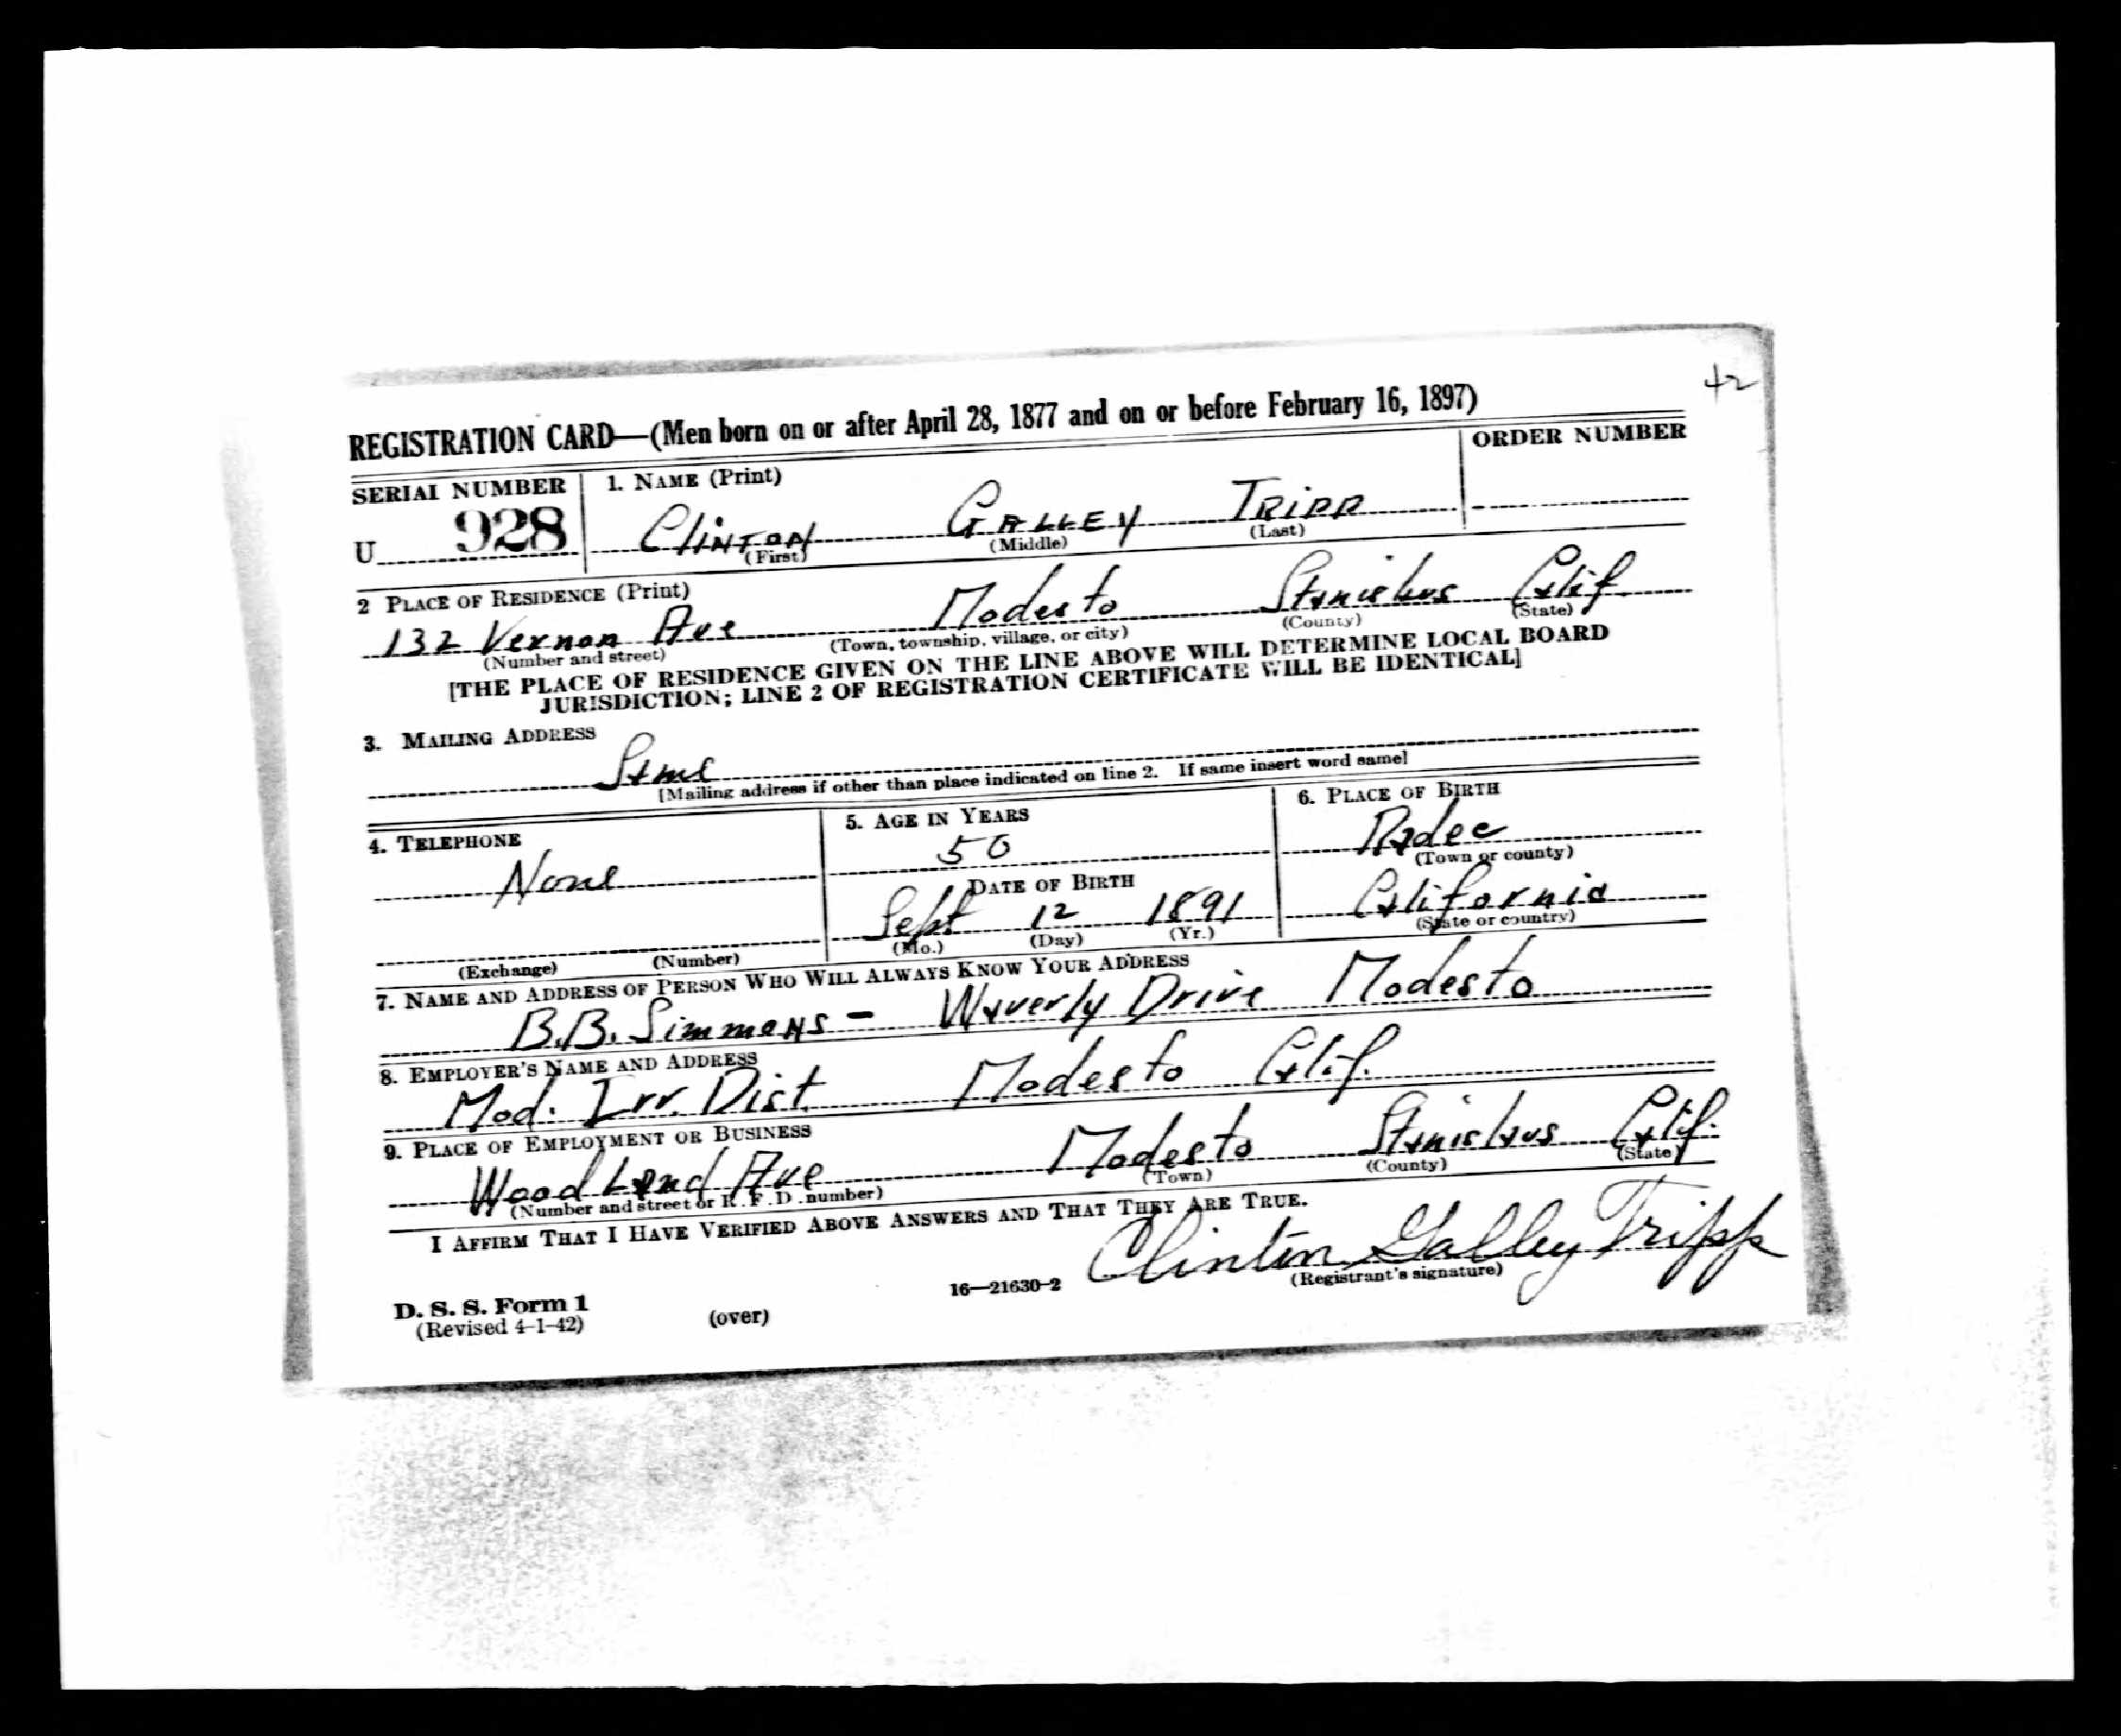 42
REGISTRATION CARD—(Men born on or after April 28, 1877 and on or before February 16, 1897)
SERIAL NUMBER 1. NAME (Print) ORDER NUMBER
U 928 CLINTON GALLEY TRIPP
(First) (Middle) (Last)
2 PLACE OF RESIDENCE (Print)
132 Vernon Ave Modesto Stanislaus Calif.
(Number and street) (Town, township, village, or city) (County) (State)
[THE PLACE OF RESIDENCE GIVEN ON THE LINE ABOVE WILL DETERMINE LOCAL BOARD
JURISDICTION; LINE 2 OF REGISTRATION CERTIFICATE WILL BE IDENTICAL]
3. MAILING ADDRESS
Same
[Mailing address if other than place indicated on line 2. If same insert word same]
4. TELEPHONE 5. AGE IN YEARS 6. PLACE OF BIRTH
None 50 Radec
(Town or county)
DATE OF BIRTH California
Sept 12 1891 (State or country)
(Mo.) (Day) (Yr.)
(Exchange) (Number)
7. NAME AND ADDRESS OF PERSON WHO WILL ALWAYS KNOW YOUR ADDRESS
B.B. Simmons - Waverly Drive Modesto
8. EMPLOYER'S NAME AND ADDRESS
Mod. Irr. Dist Modesto Calif.
9. PLACE OF EMPLOYMENT OR BUSINESS
Wood Land Ave Modesto Stanislaus Calif.
(Number and street or R. F. D. number) (Town) (County) (State)
I AFFIRM THAT I HAVE VERIFIED ABOVE ANSWERS AND THAT THEY ARE TRUE.
Clinton Galley Tripp
(Registrant's signature)
D. S. S. Form 1 16—21630-2
(Revised 4-1-42) (over)